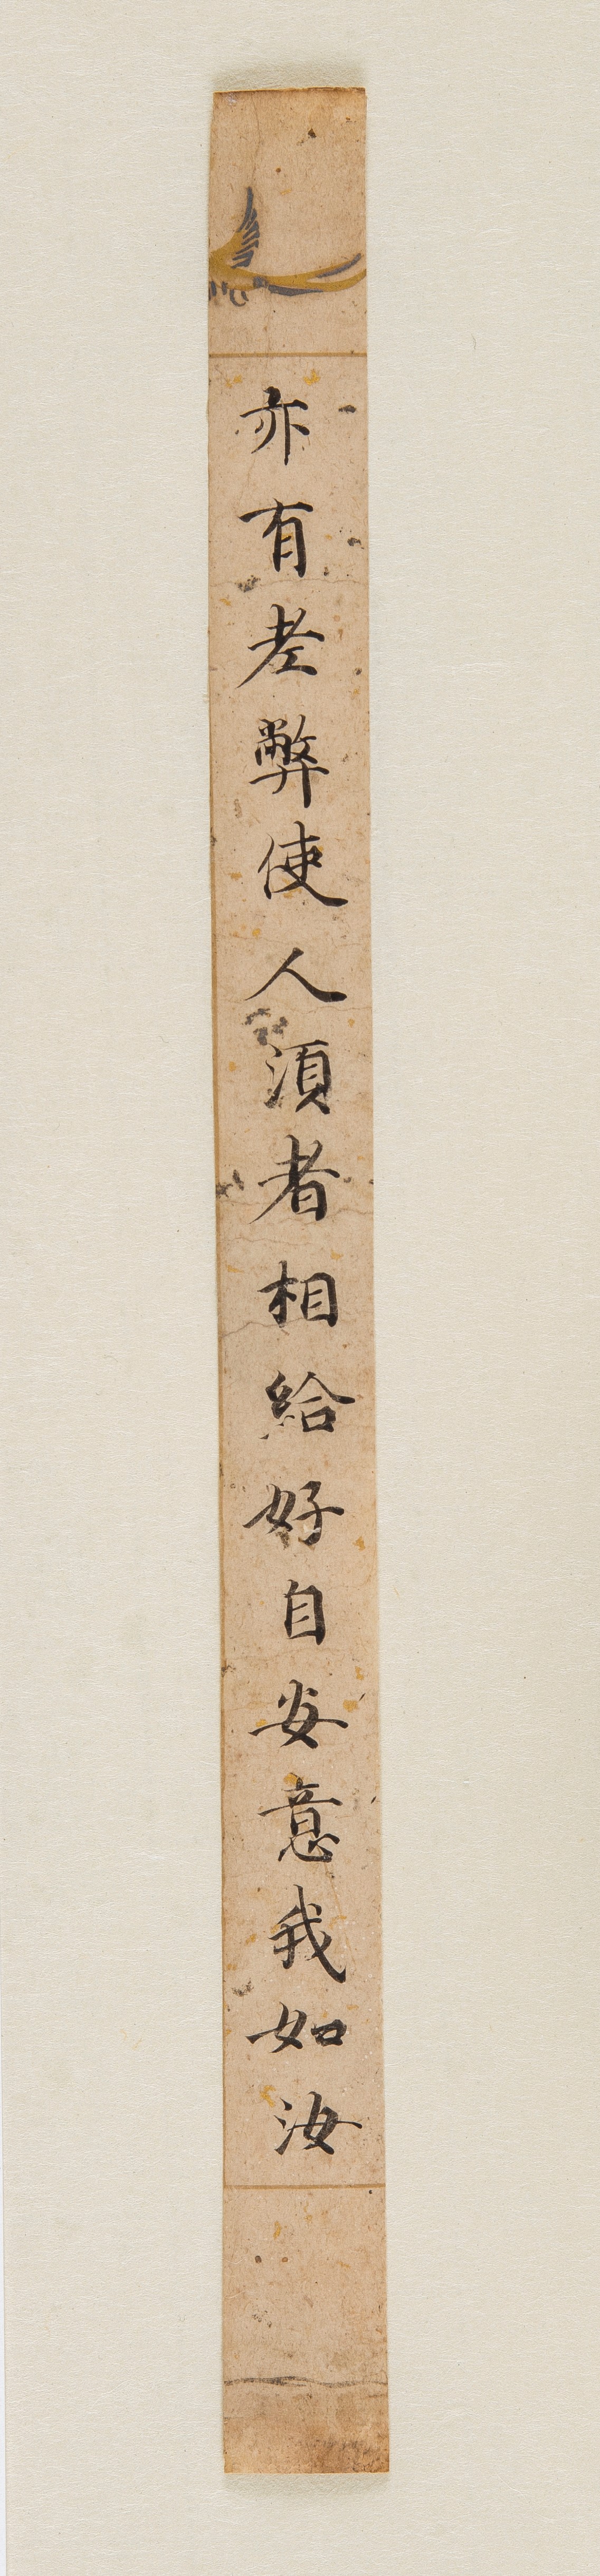 亦有老弊使人須者相給好自安意我如汝